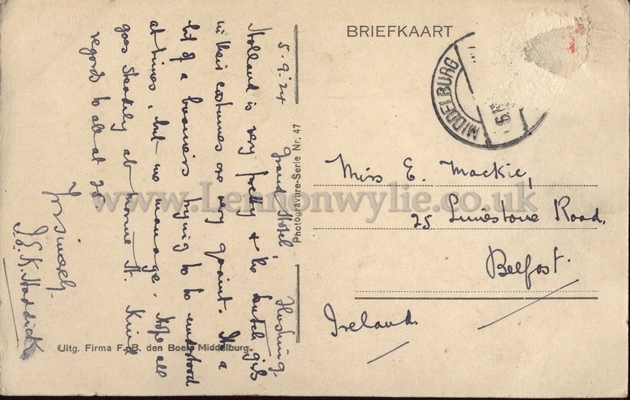 BRIEFKAART
MIDDELBURG
Grand Hotel,
5.9.24
Holland is very pretty & the Dutch girls
in their costumes are very quaint. It's a
bit of a business trying to be understood
at times, but we manage. Hope all
goes steadily at home. Kind
regards to all at 25
Yrs sincerely
J.G.K. Haddick
Photogravure-Serie Nr. 47
Uitg. Firma F. B. den Boer, Middelburg.
Miss E. Mackie,
25 Limestone Road,
Belfast.
Ireland
www.Lennonwylie.co.uk